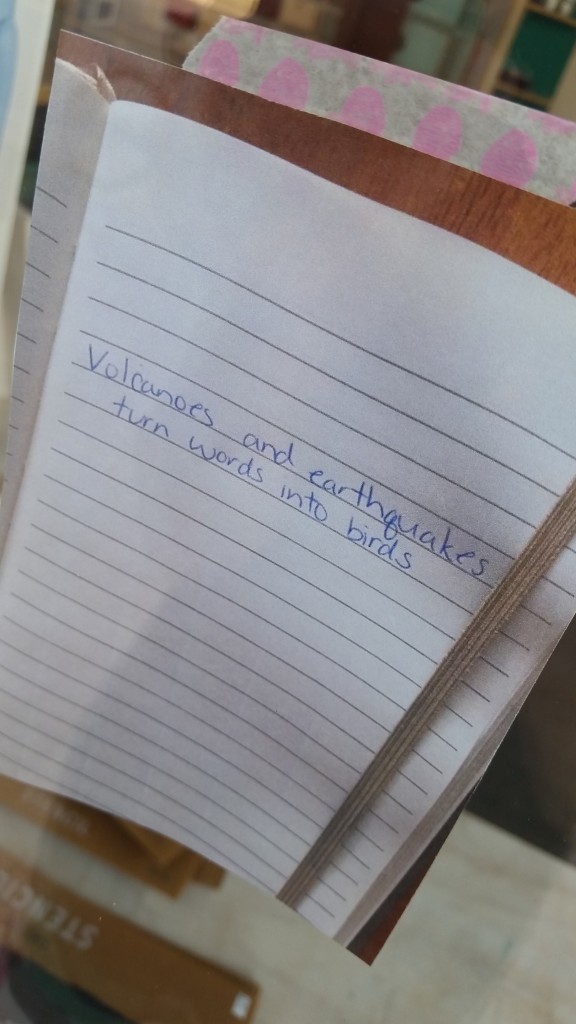 Volcanoes and earthquakes
turn words into birds
STENCIL